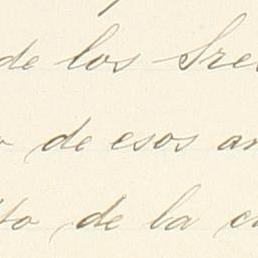 de los Sre
de esos an
to de la c